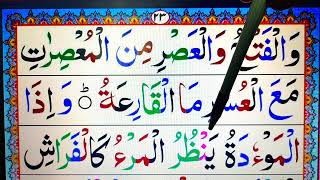 ٢٣
وَالْفَتْحُ وَالْعَصْرِ مِنَ الْمُعْصِرٰتِ
مَعَ الْعُسْرِ مَا الْقَارِعَةُ ۞ وَ اِذَا
الْمَوْءٗدَةُ يَنْظُرُ الْمَرْءُ كَالْفَرَاشِ